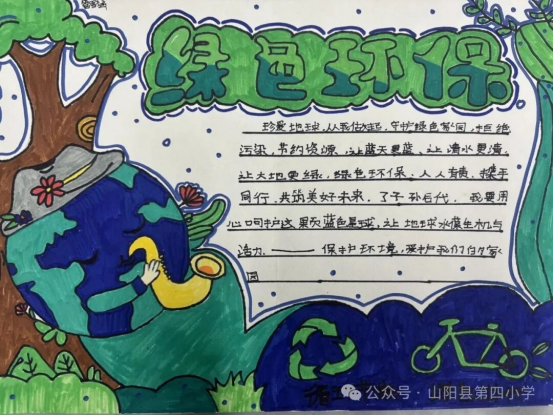 绿色环保
珍爱地球,从我做起,守护绿色家园,拒绝
污染,节约资源,让蓝天更蓝、让清水更清,
让大地更绿,绿色环保,人人有责,携手
同行,共筑美好未来,了子孙后代,我要用
心呵护这颗蓝色星球,让地球永葆生机与
活力。——保护环境,爱护我们的家
园
公众号·山阳县第四小学